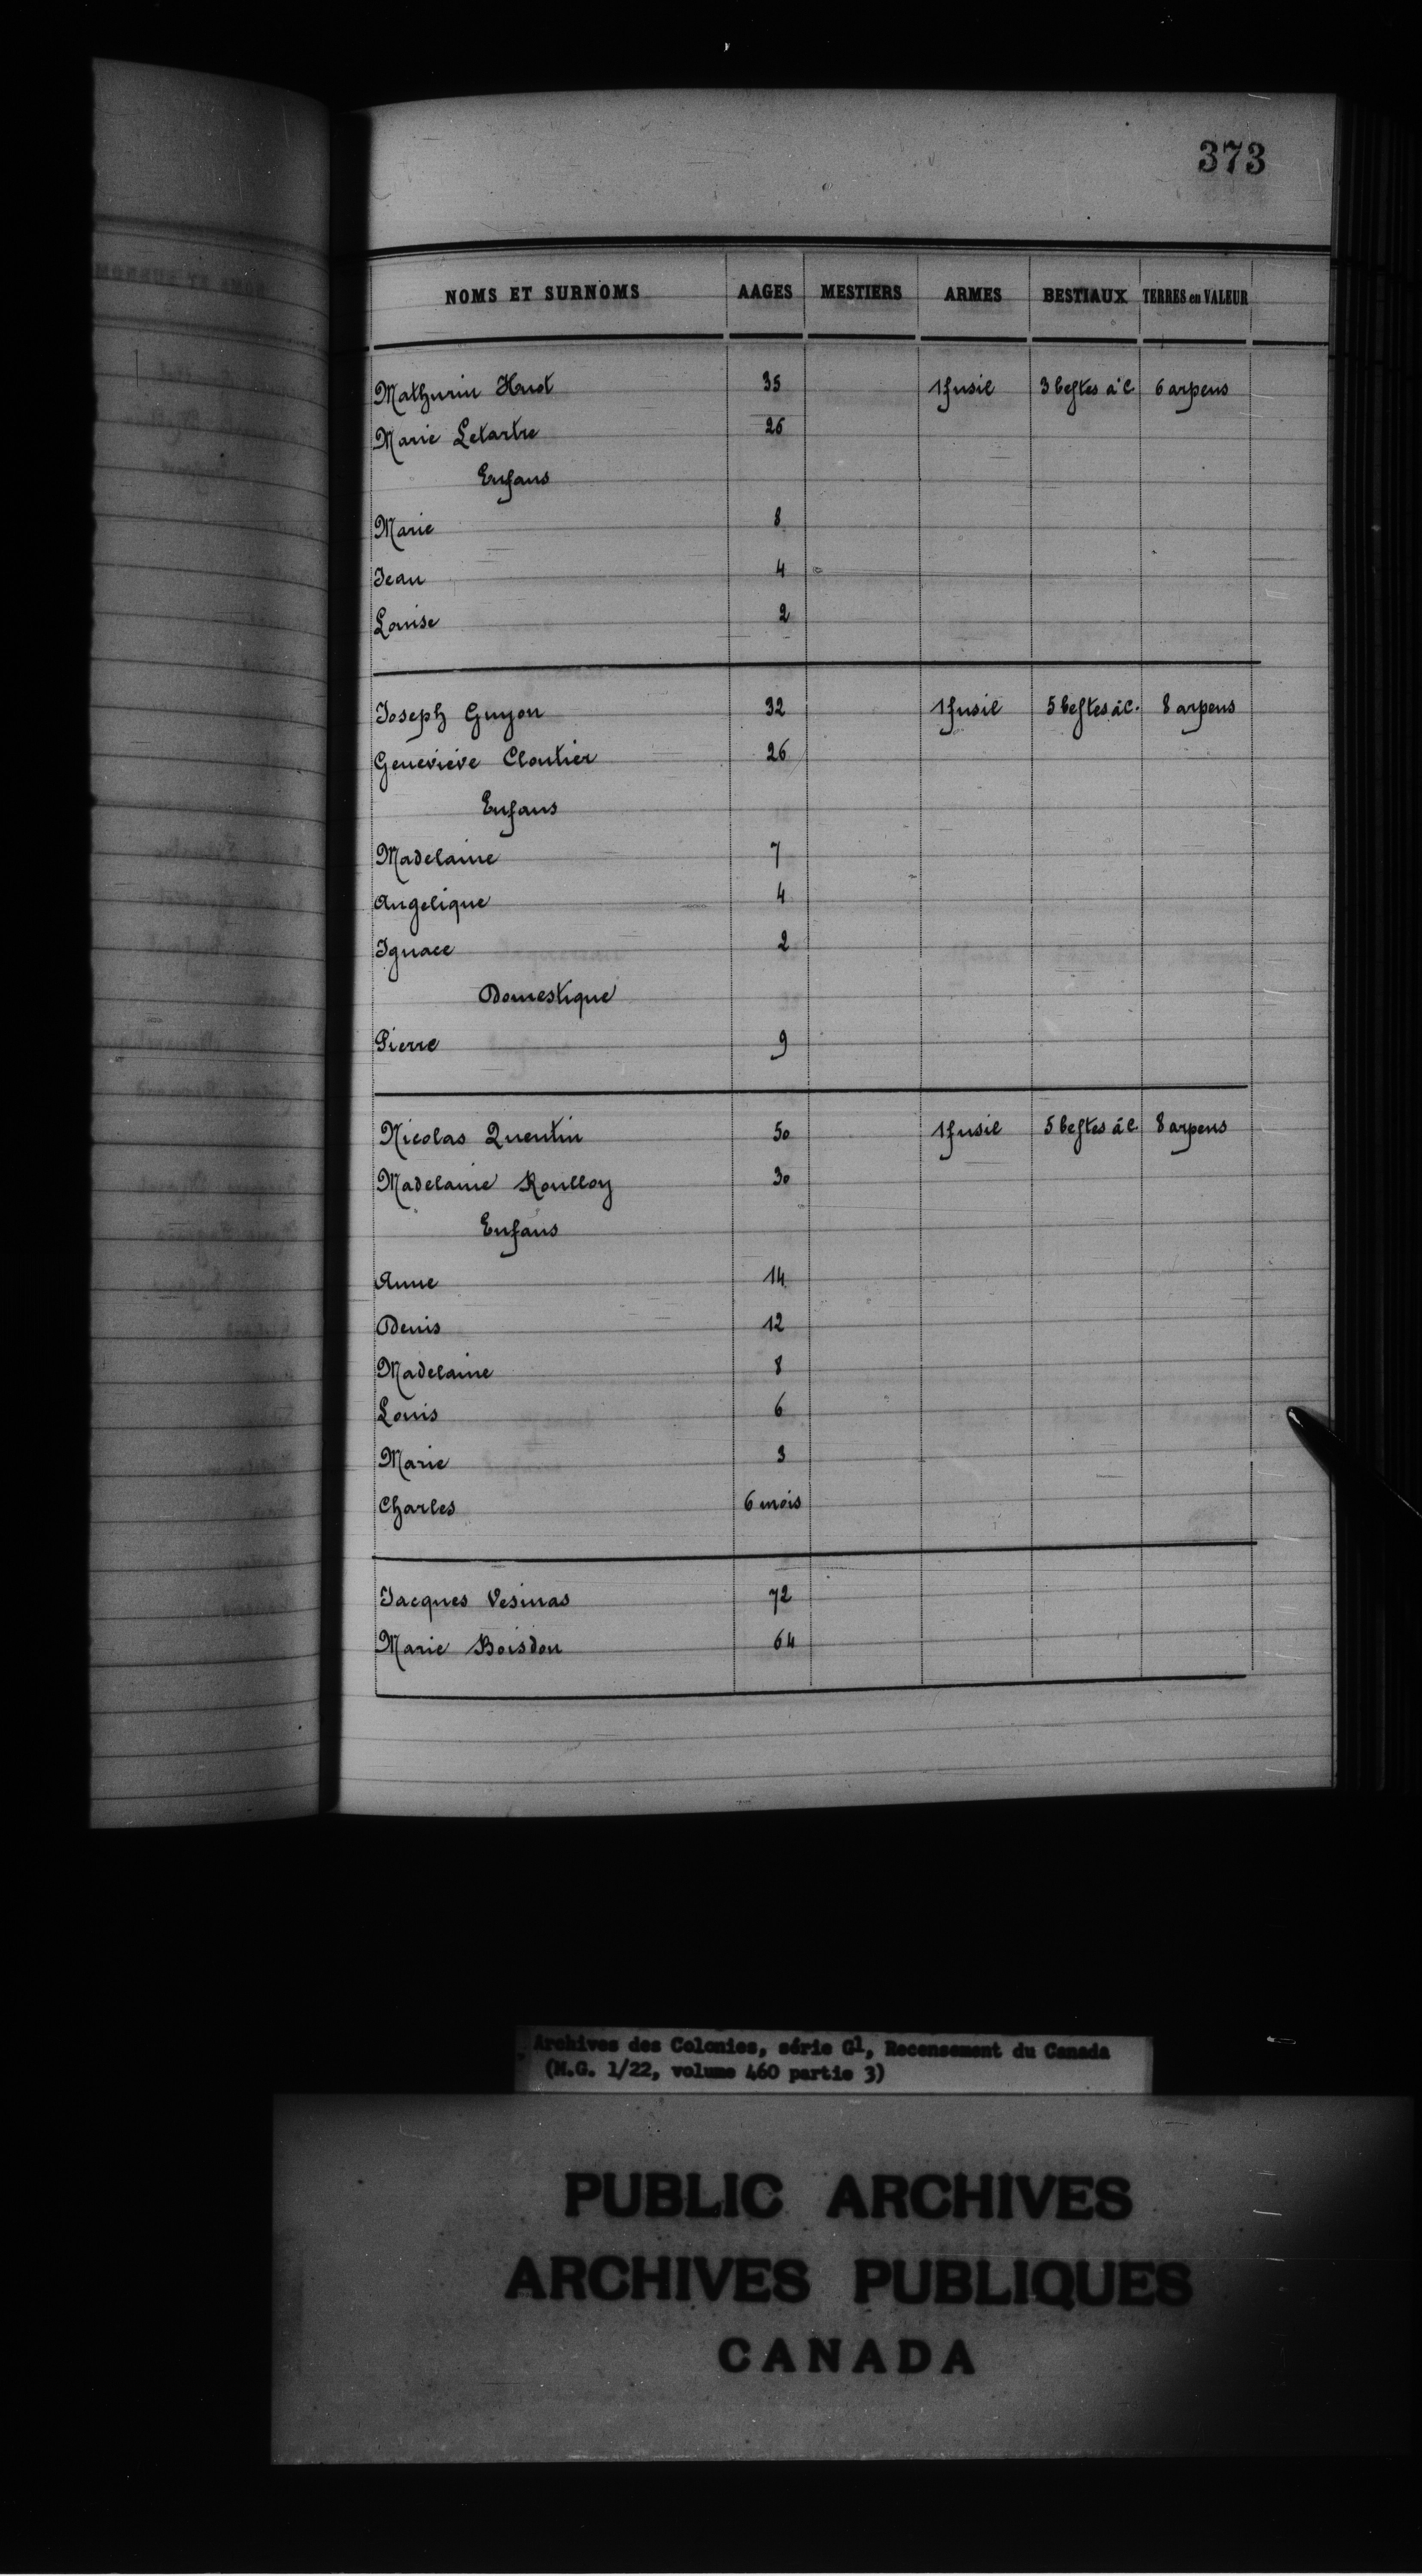 373
NOMS ET SURNOMS AAGES MESTIERS ARMES BESTIAUX TERRES en VALEUR
Mathurin Huot 35 1 fusil 3 bestes à C. 6 arpens
Marie Letartre 26
Enfans
Marie 8
Jean 4
Louise 2
Joseph Guyon 32 1 fusil 5 bestes à C. 8 arpens
Geneviève Cloutier 26
Enfans
Madelaine 7
Angelique 4
Ignace 2
Domestique
Pierre 9
Nicolas Quentin 50 1 fusil 5 bestes à C. 8 arpens
Madelaine Roulloy 30
Enfans
Anne 14
Denis 12
Madelaine 8
Louis 6
Marie 3
Charles 6 mois
Jacques Vesinas 72
Marie Boisdon 64
Archives des Colonies, série G1, Recensement du Canada
(M.G. 1/22, volume 460 partie 3)
PUBLIC ARCHIVES
ARCHIVES PUBLIQUES
CANADA